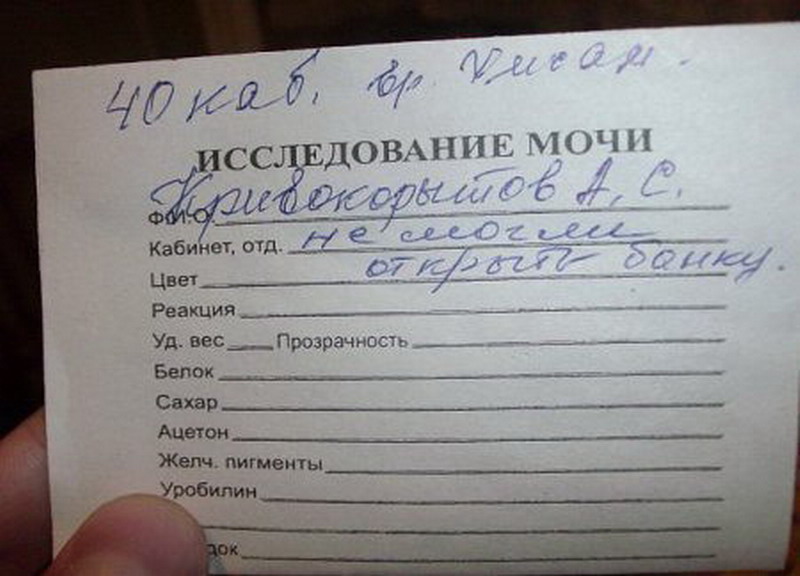 40 каб. вр.
ИССЛЕДОВАНИЕ МОЧИ
Ф.И.О. Кривокорытов А. С.
Кабинет, отд. не могли
открыть банку.
Цвет
Реакция
Уд. вес Прозрачность
Белок
Сахар
Ацетон
Желч. пигменты
Уробилин